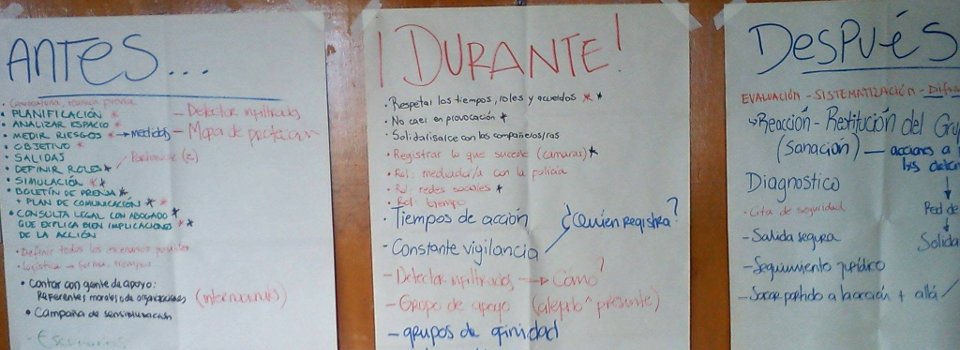 ANTES...
Convocatoria, reunión previa
• PLANIFICACIÓN * — Detectar infiltrados
• ANALIZAR ESPACIO *
• MEDIR RIESGOS * → medidas — Mapa de protección
• OBJETIVO *
• SALIDAS
• DEFINIR ROLES *
• SIMULACIÓN * *
• BOLETÍN DE PRENSA *
+ PLAN DE COMUNICACIÓN * *
• CONSULTA LEGAL CON ABOGADO *
QUE EXPLICA BIEN IMPLICACIONES * *
DE LA ACCIÓN
• Definir todos los escenarios posibles
• Logística →
• Contar con gente de apoyo:
Referentes morales, de organizaciones (internacionales)
• Campaña de sensibilización
¡DURANTE!
• Respetar los tiempos, roles y acuerdos * *
• No caer en provocación *
• Solidarisalce con los compañeros/ras
• Registrar lo que sucede (camaras) *
• Rol: mediador/a con la policía
• Rol: redes sociales *
• Rol: tiempo
• Tiempos de acción
- Constante vigilancia ¿Quien registra?
- Detectar infiltrados → Cómo?
- Grupo de apoyo (alejado ^ presente)
- grupos de afinidad
DESPUÉS
EVALUACIÓN - SISTEMATIZACIÓN -
↳ Reacción - Restitución del
(sanación) — acciones a
Diagnostico
• Cita de seguridad
Red de
- Salida segura
Solida
- Seguimiento jurídico
- Sacar partido a la acción + allá